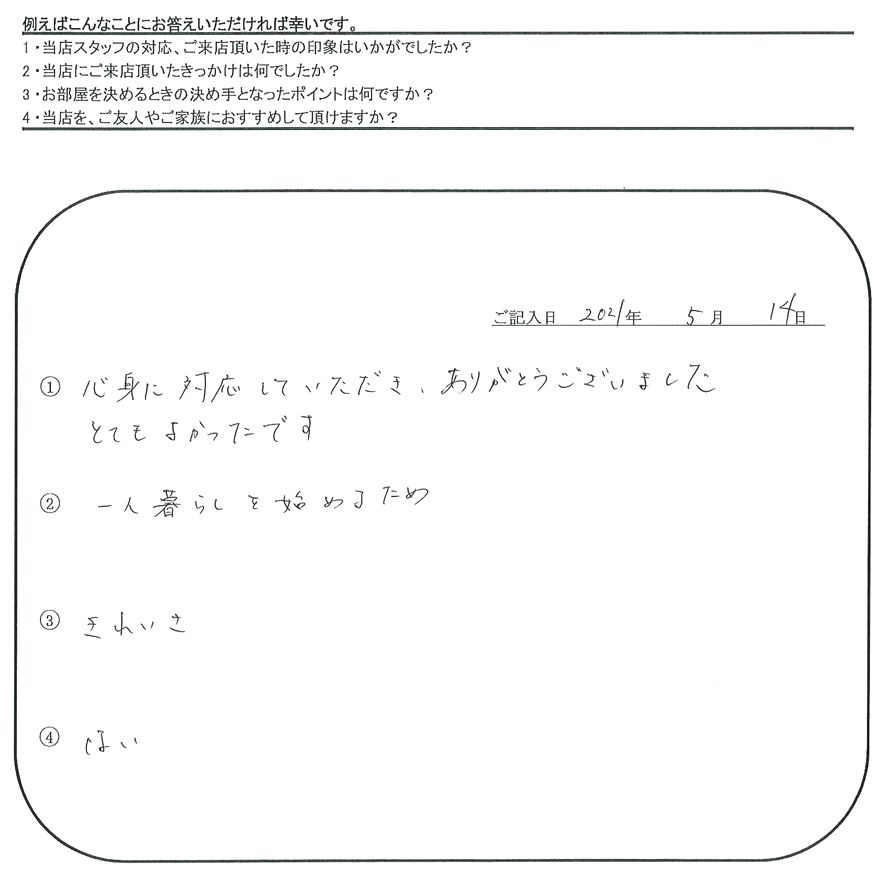 例えばこんなことにお答えいただければ幸いです。
1・当店スタッフの対応、ご来店頂いた時の印象はいかがでしたか？
2・当店にご来店頂いたきっかけは何でしたか？
3・お部屋を決めるときの決め手となったポイントは何ですか？
4・当店を、ご友人やご家族におすすめして頂けますか？
ご記入日 2021年 5月 14日
① 心身に対応していただき、ありがとうございました
とてもよかったです
② 一人暮らしを始めるため
③ きれいさ
④ はい